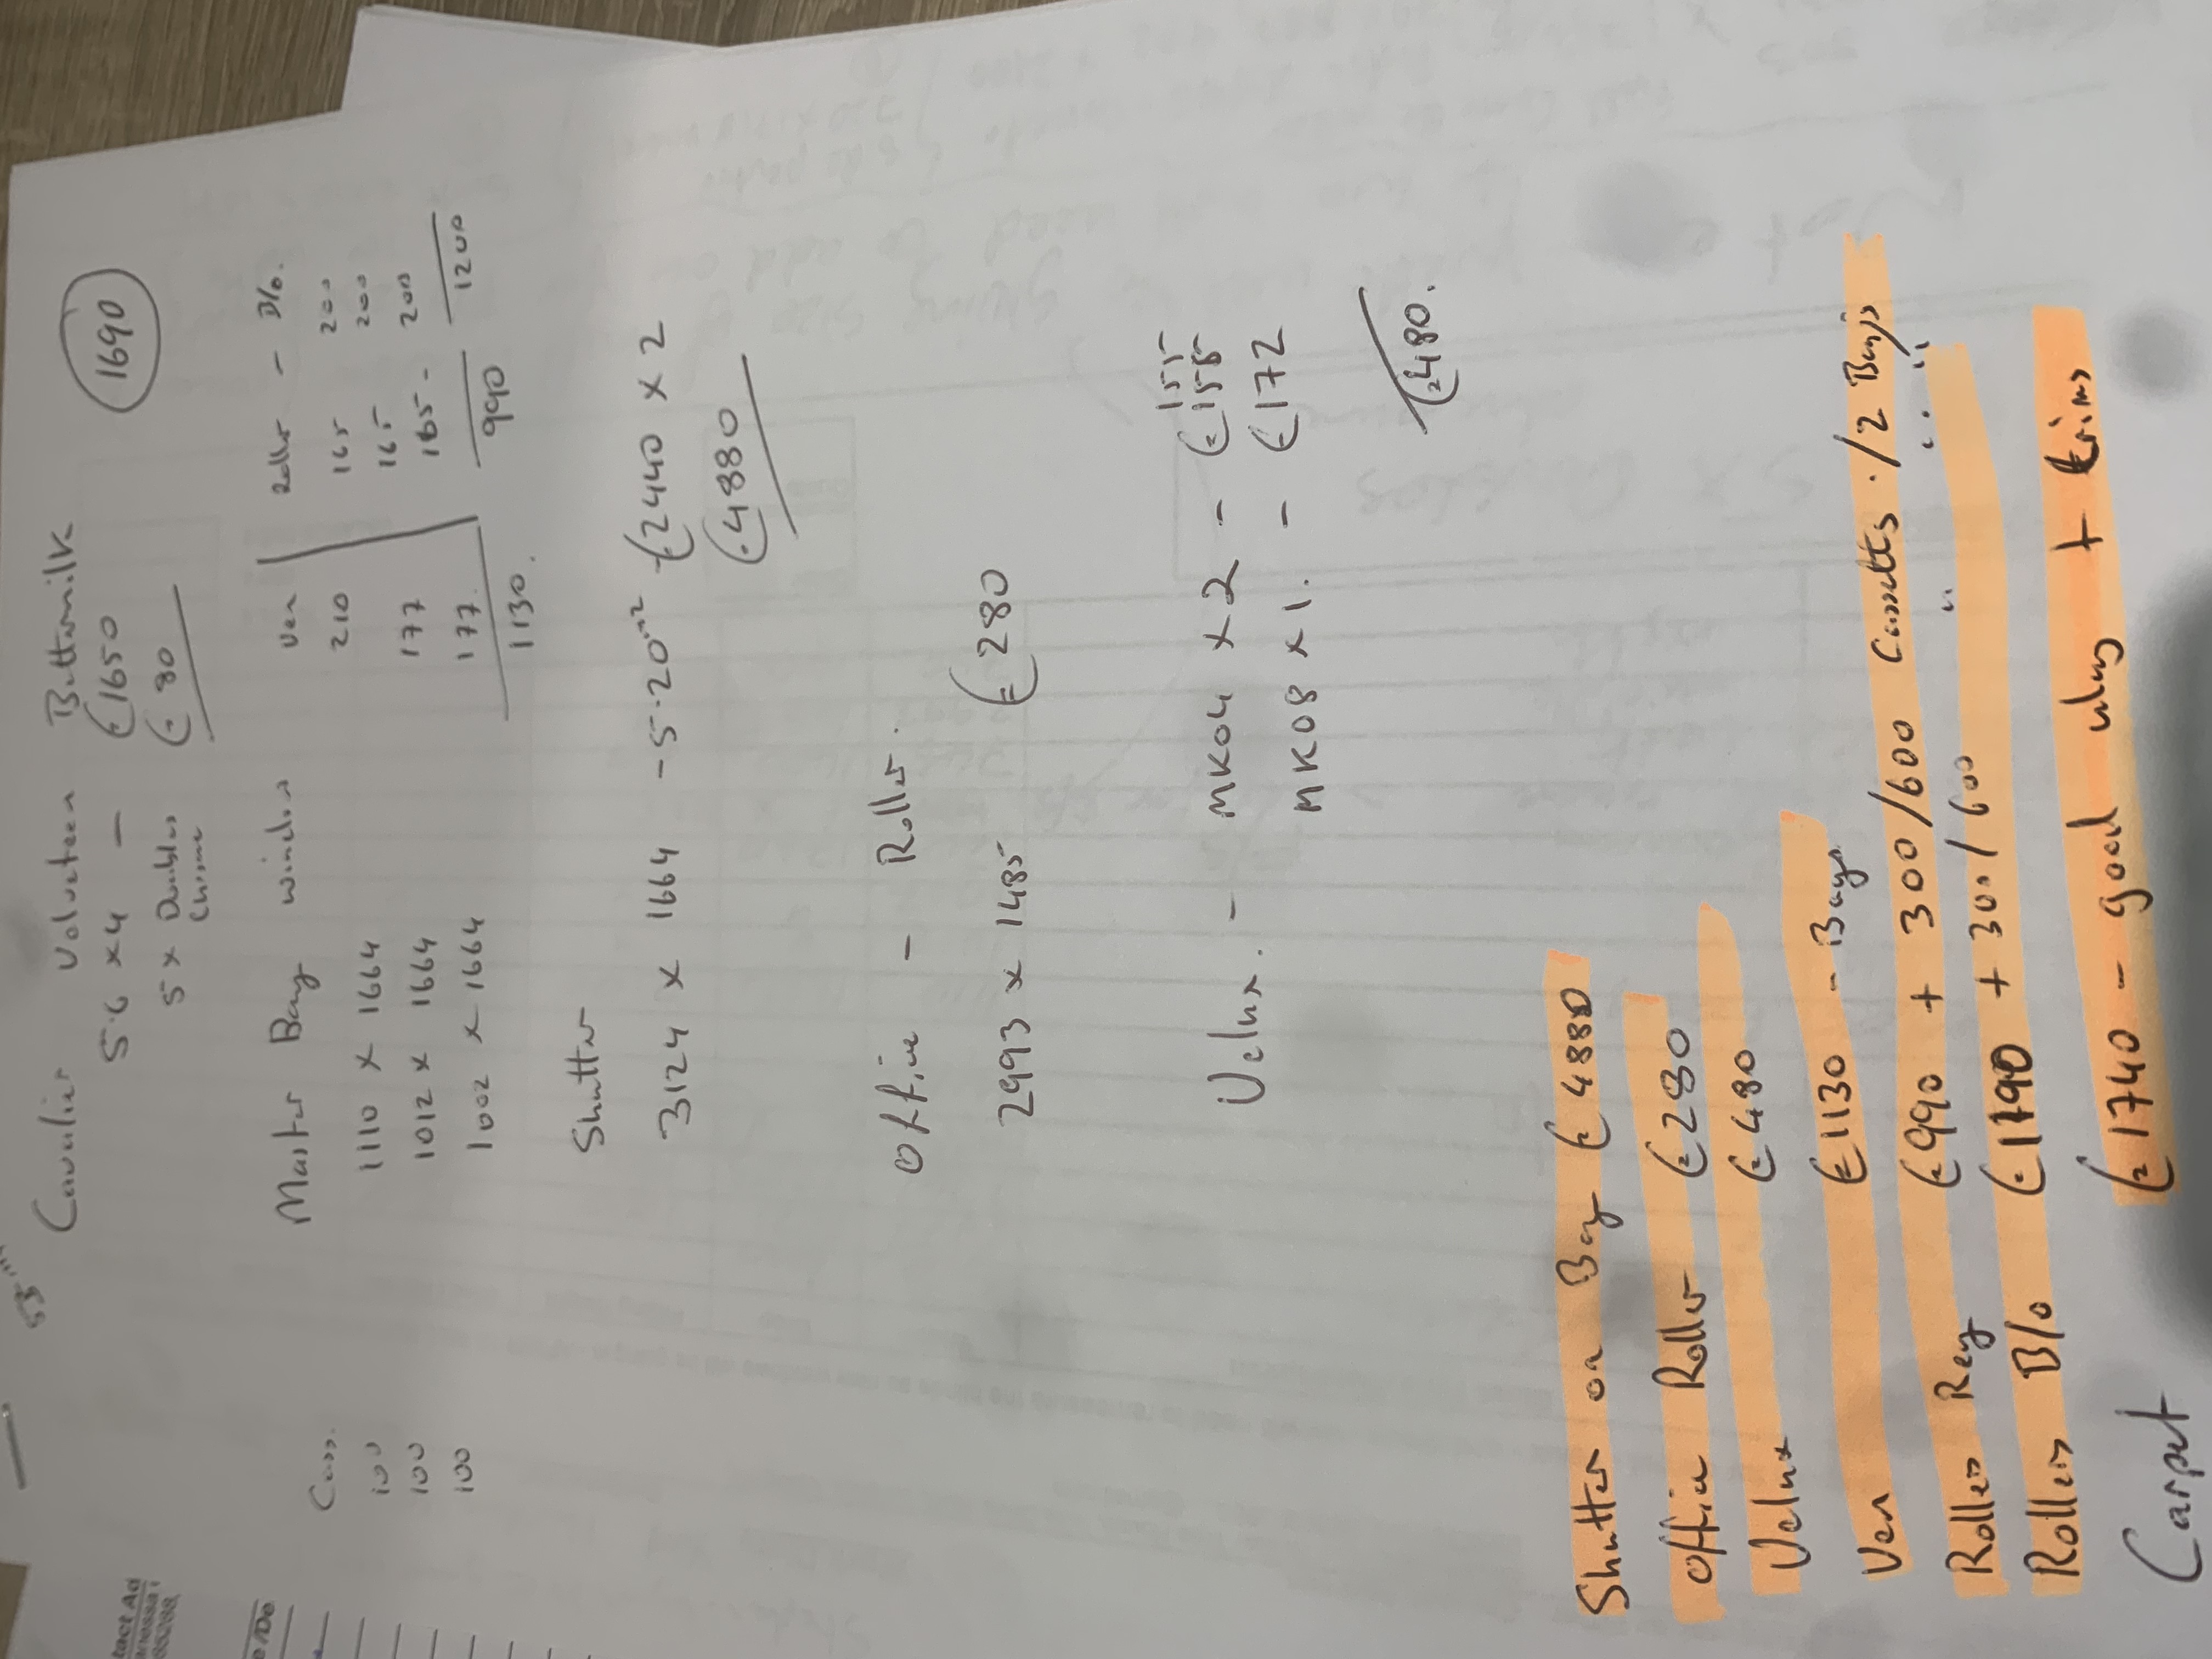 Cavalier Valveteen Buttermilk
5.6 x 4 — £1650 1690
5 x Doubles £80
Chrome
Master Bay window Ven Roller - B/o.
Cass.
100 1110 x 1664 210 165 200
100 1012 x 1664 177 165 200
100 1002 x 1664 177 165 - 200
1130. 990 1200
Shutter
3124 x 1664 - 5.20m2 £2440 x 2
£4880
Office - Roller.
2993 x 1485 £280
Velux. - MK04 x 2 - £155 155
MK08 x 1. - £172
£480.
Shutter on Bay £4880
Office Roller £280
Velux £480
Ven £1130 - Bays
Roller Reg £990 + 300/600 Cassetts. /2 Bays
Rollers B/o £1190 + 300/600 "
Carpet £1740 - good ulay + trims